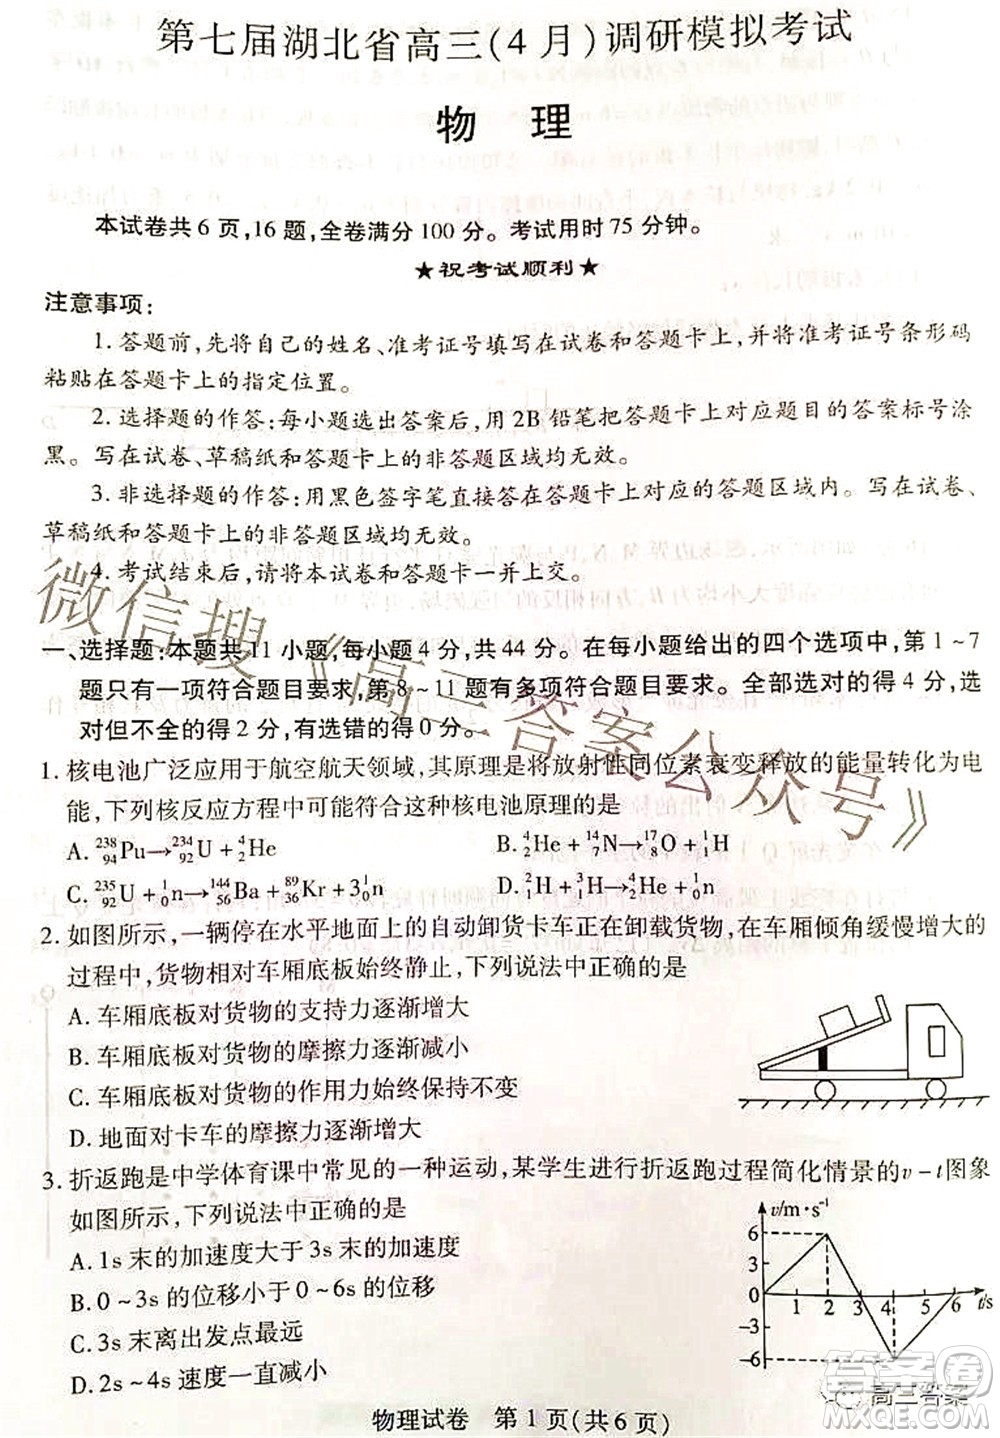 第七届湖北省高三(4月)调研模拟考试
物 理
本试卷共6页,16题,全卷满分100分。考试用时75分钟。
★祝考试顺利★
注意事项:
1.答题前,先将自己的姓名、准考证号填写在试卷和答题卡上,并将准考证号条形码
粘贴在答题卡上的指定位置。
2.选择题的作答:每小题选出答案后,用2B铅笔把答题卡上对应题目的答案标号涂
黑。写在试卷、草稿纸和答题卡上的非答题区域均无效。
3.非选择题的作答:用黑色签字笔直接答在答题卡上对应的答题区域内。写在试卷、
草稿纸和答题卡上的非答题区域均无效。
4.考试结束后,请将本试卷和答题卡一并上交。
微信搜《高三答案公众号》
一、选择题:本题共11小题,每小题4分,共44分。在每小题给出的四个选项中,第1~7
题只有一项符合题目要求,第8~11题有多项符合题目要求。全部选对的得4分,选
对但不全的得2分,有选错的得0分。
1.核电池广泛应用于航空航天领域,其原理是将放射性同位素衰变释放的能量转化为电
能,下列核反应方程中可能符合这种核电池原理的是
A. ²³⁸₉₄Pu→²³⁴₉₂U+⁴₂He B. ⁴₂He+¹⁴₇N→¹⁷₈O+¹₁H
C. ²³⁵₉₂U+¹₀n→¹⁴⁴₅₆Ba+⁸⁹₃₆Kr+3¹₀n D. ²₁H+³₁H→⁴₂He+¹₀n
2.如图所示,一辆停在水平地面上的自动卸货卡车正在卸载货物,在车厢倾角缓慢增大的
过程中,货物相对车厢底板始终静止,下列说法中正确的是
A.车厢底板对货物的支持力逐渐增大
B.车厢底板对货物的摩擦力逐渐减小
C.车厢底板对货物的作用力始终保持不变
D.地面对卡车的摩擦力逐渐增大
3.折返跑是中学体育课中常见的一种运动,某学生进行折返跑过程简化情景的v-t图象
如图所示,下列说法中正确的是
A.1s末的加速度大于3s末的加速度
B.0~3s的位移小于0~6s的位移
C.3s末离出发点最远
D.2s~4s速度一直减小
v/m·s⁻¹
6
3
0
1 2 3 4 5 6 t/s
-3
-6
物理试卷 第1页(共6页)
高三答案
答案圈
MXQE.COM